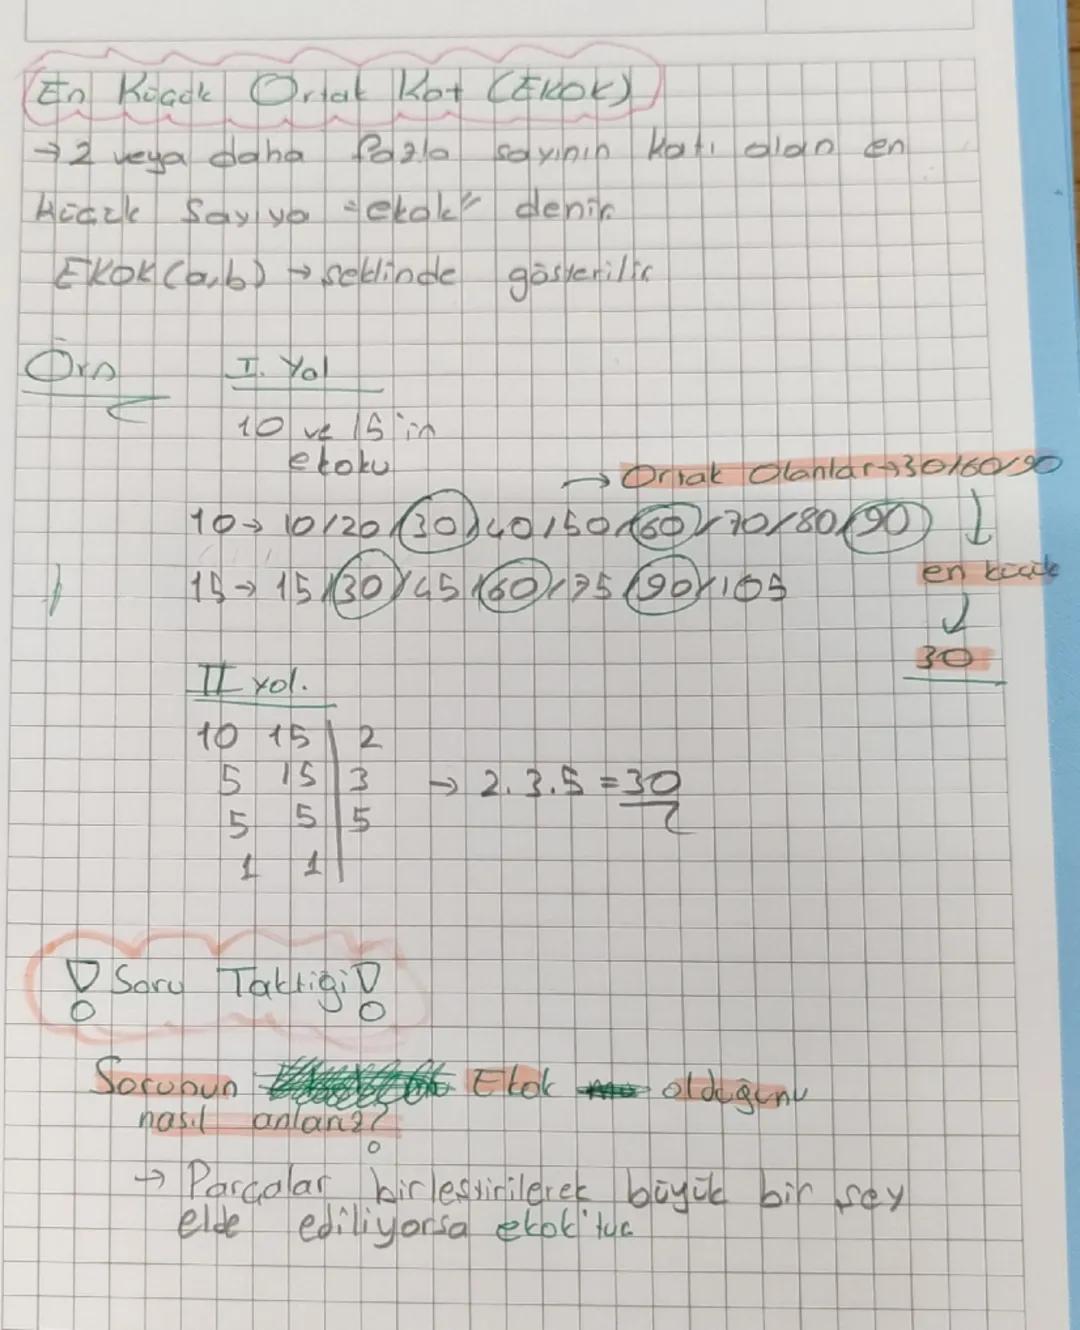 En Küçük Ortak Kat (EKOK)
→ 2 veya daha fazla sayının katı olan en
küçük sayıya "ekok" denir
EKOK (a,b) → şeklinde gösterilir
Örn
I. Yol
10 ve 15'in
ekoku
→ Ortak Olanlar → 30/60/90
10 → 10/20/30/40/50/60/70/80/90
en küçük
15 → 15/30/45/60/75/90/105
30
II yol.
10 15 | 2
5 15 | 3 → 2.3.5 = 30
5 5 | 5
1 1 |
! Soru Taktiği !
Sorunun Ekok olduğunu
nasıl anlarız?
→ Parçalar birleştirilerek büyük bir şey
elde ediliyorsa ekok'tur